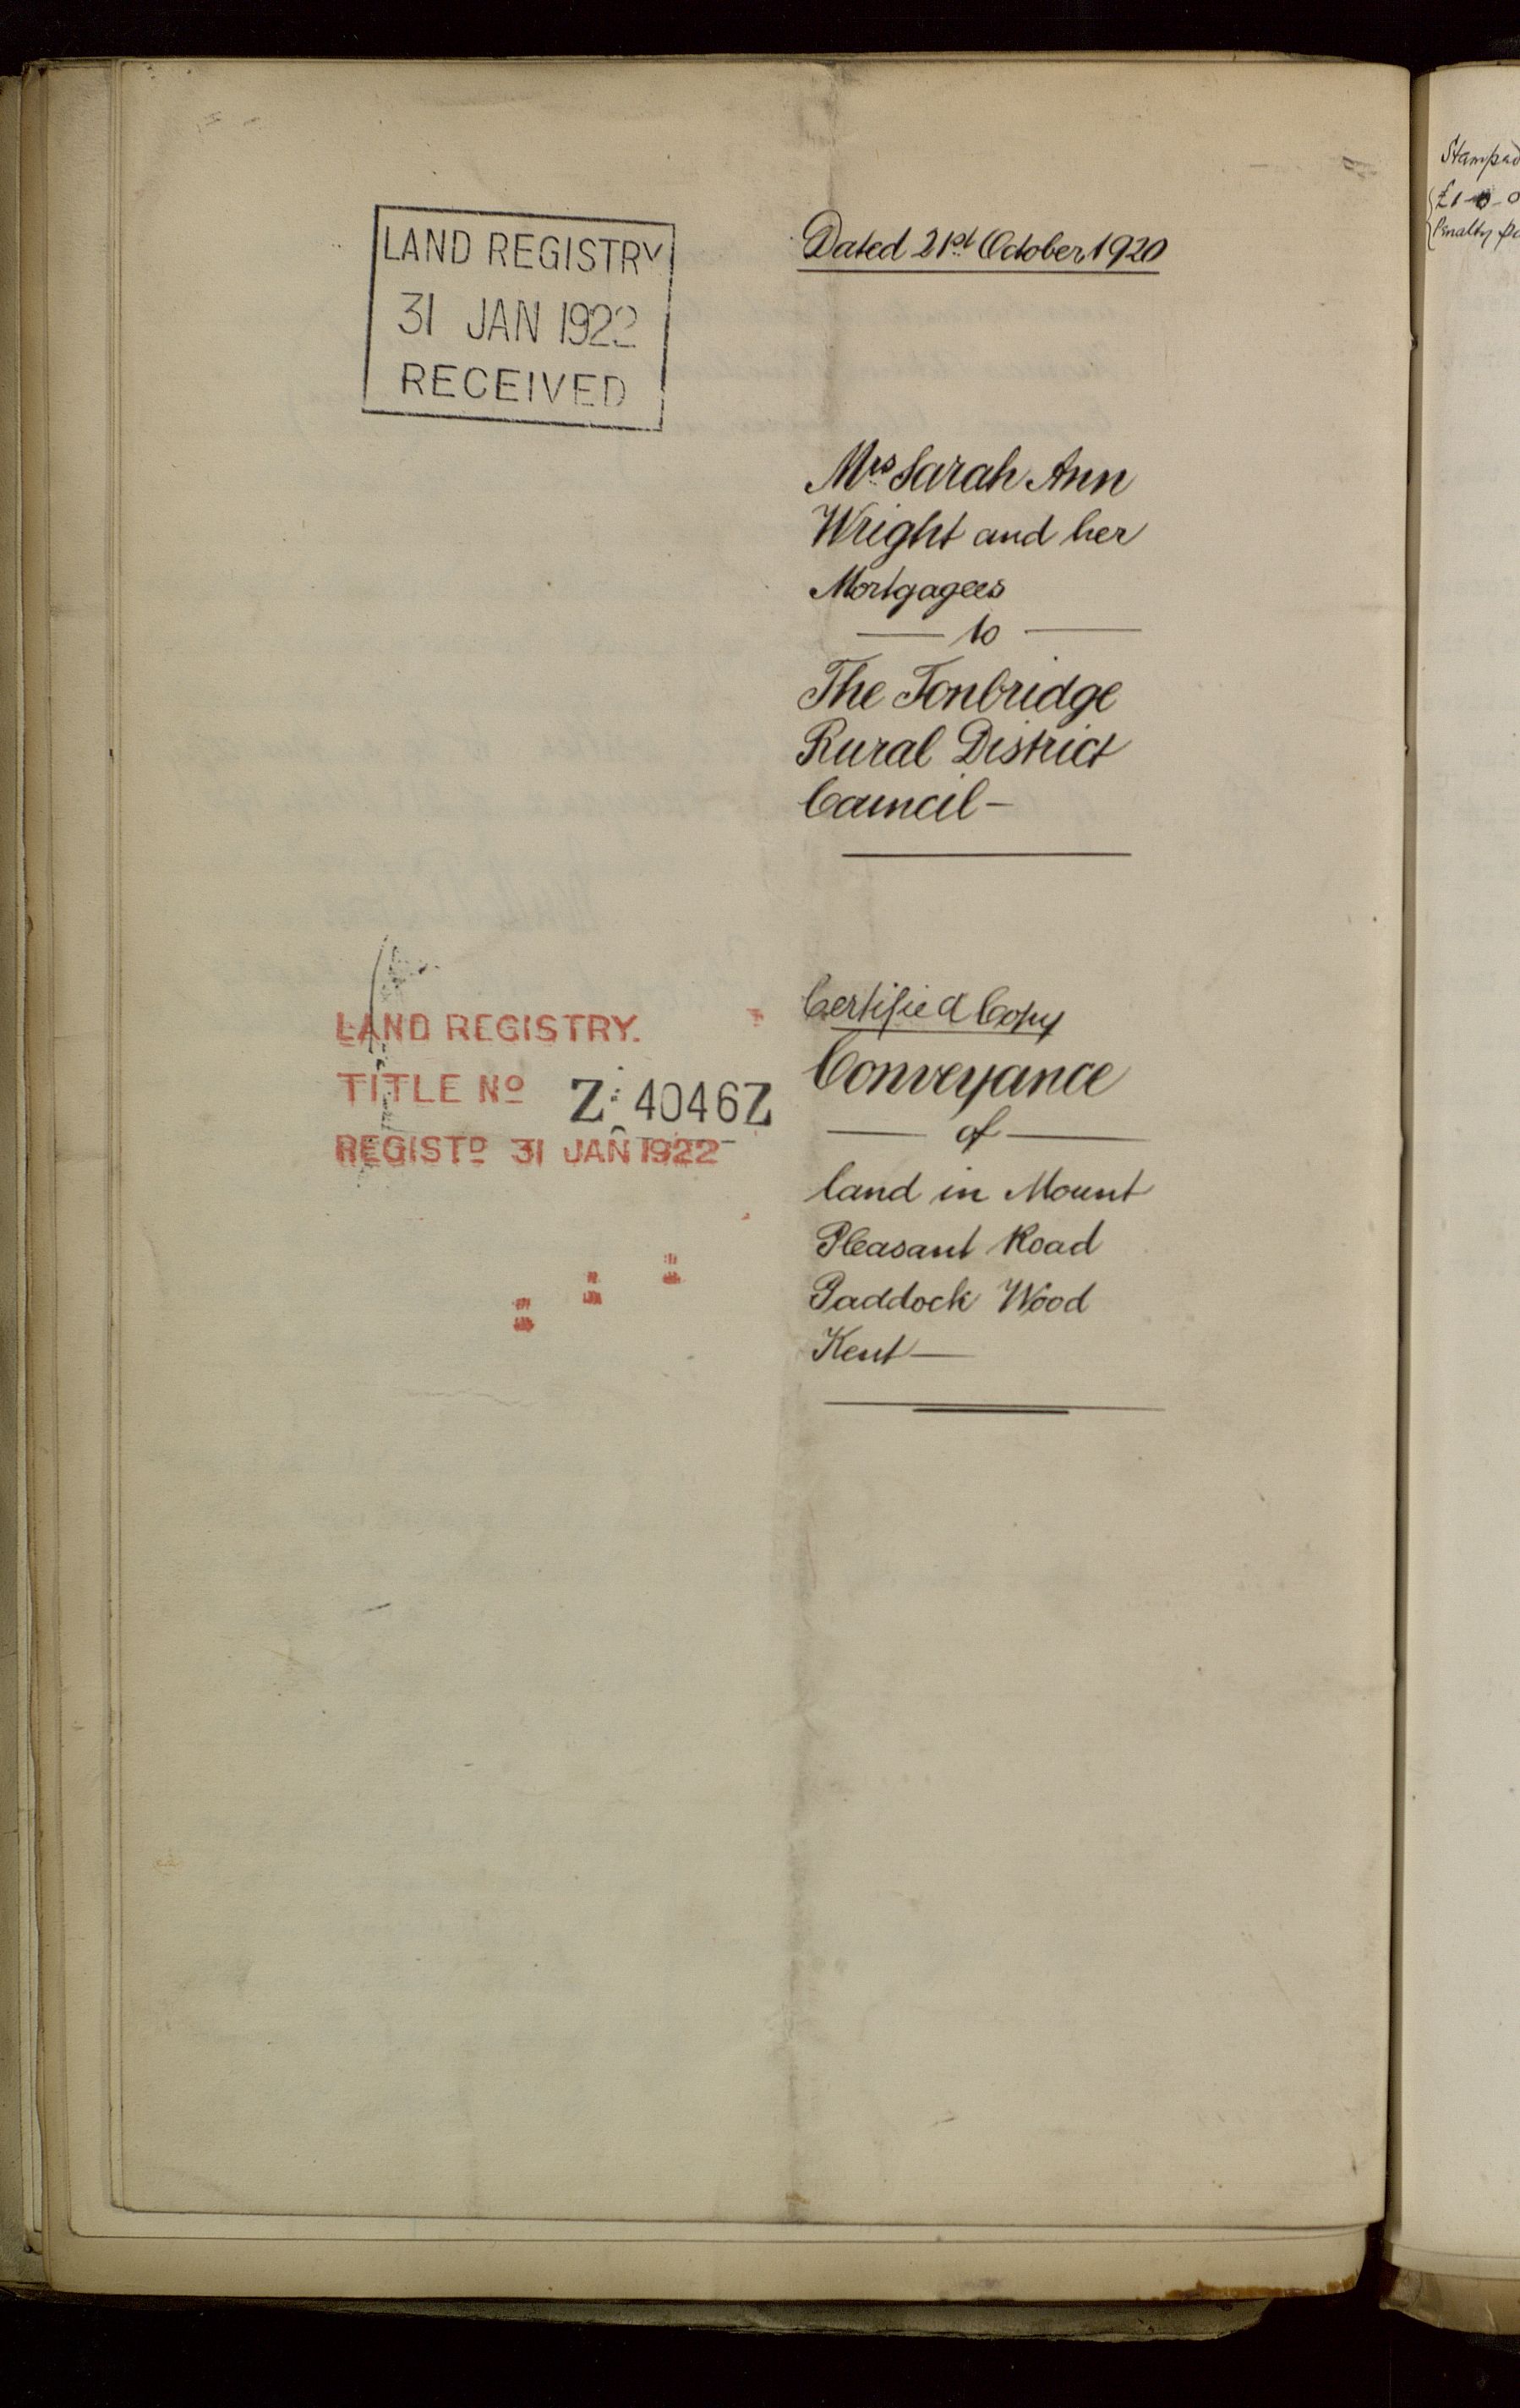 LAND REGISTRY
31 JAN 1922
RECEIVED
Dated 21st October 1920
Mrs Sarah Ann
Wright and her
Mortgagees
— to —
The Tonbridge
Rural District
Council —
LAND REGISTRY.
TITLE No Z 4046Z
REGISTD 31 JAN 1922
Certified Copy
Conveyance
— of —
land in Mount
Pleasant Road
Paddock Wood
Kent —
Stamped
£1-0-0
Penalty